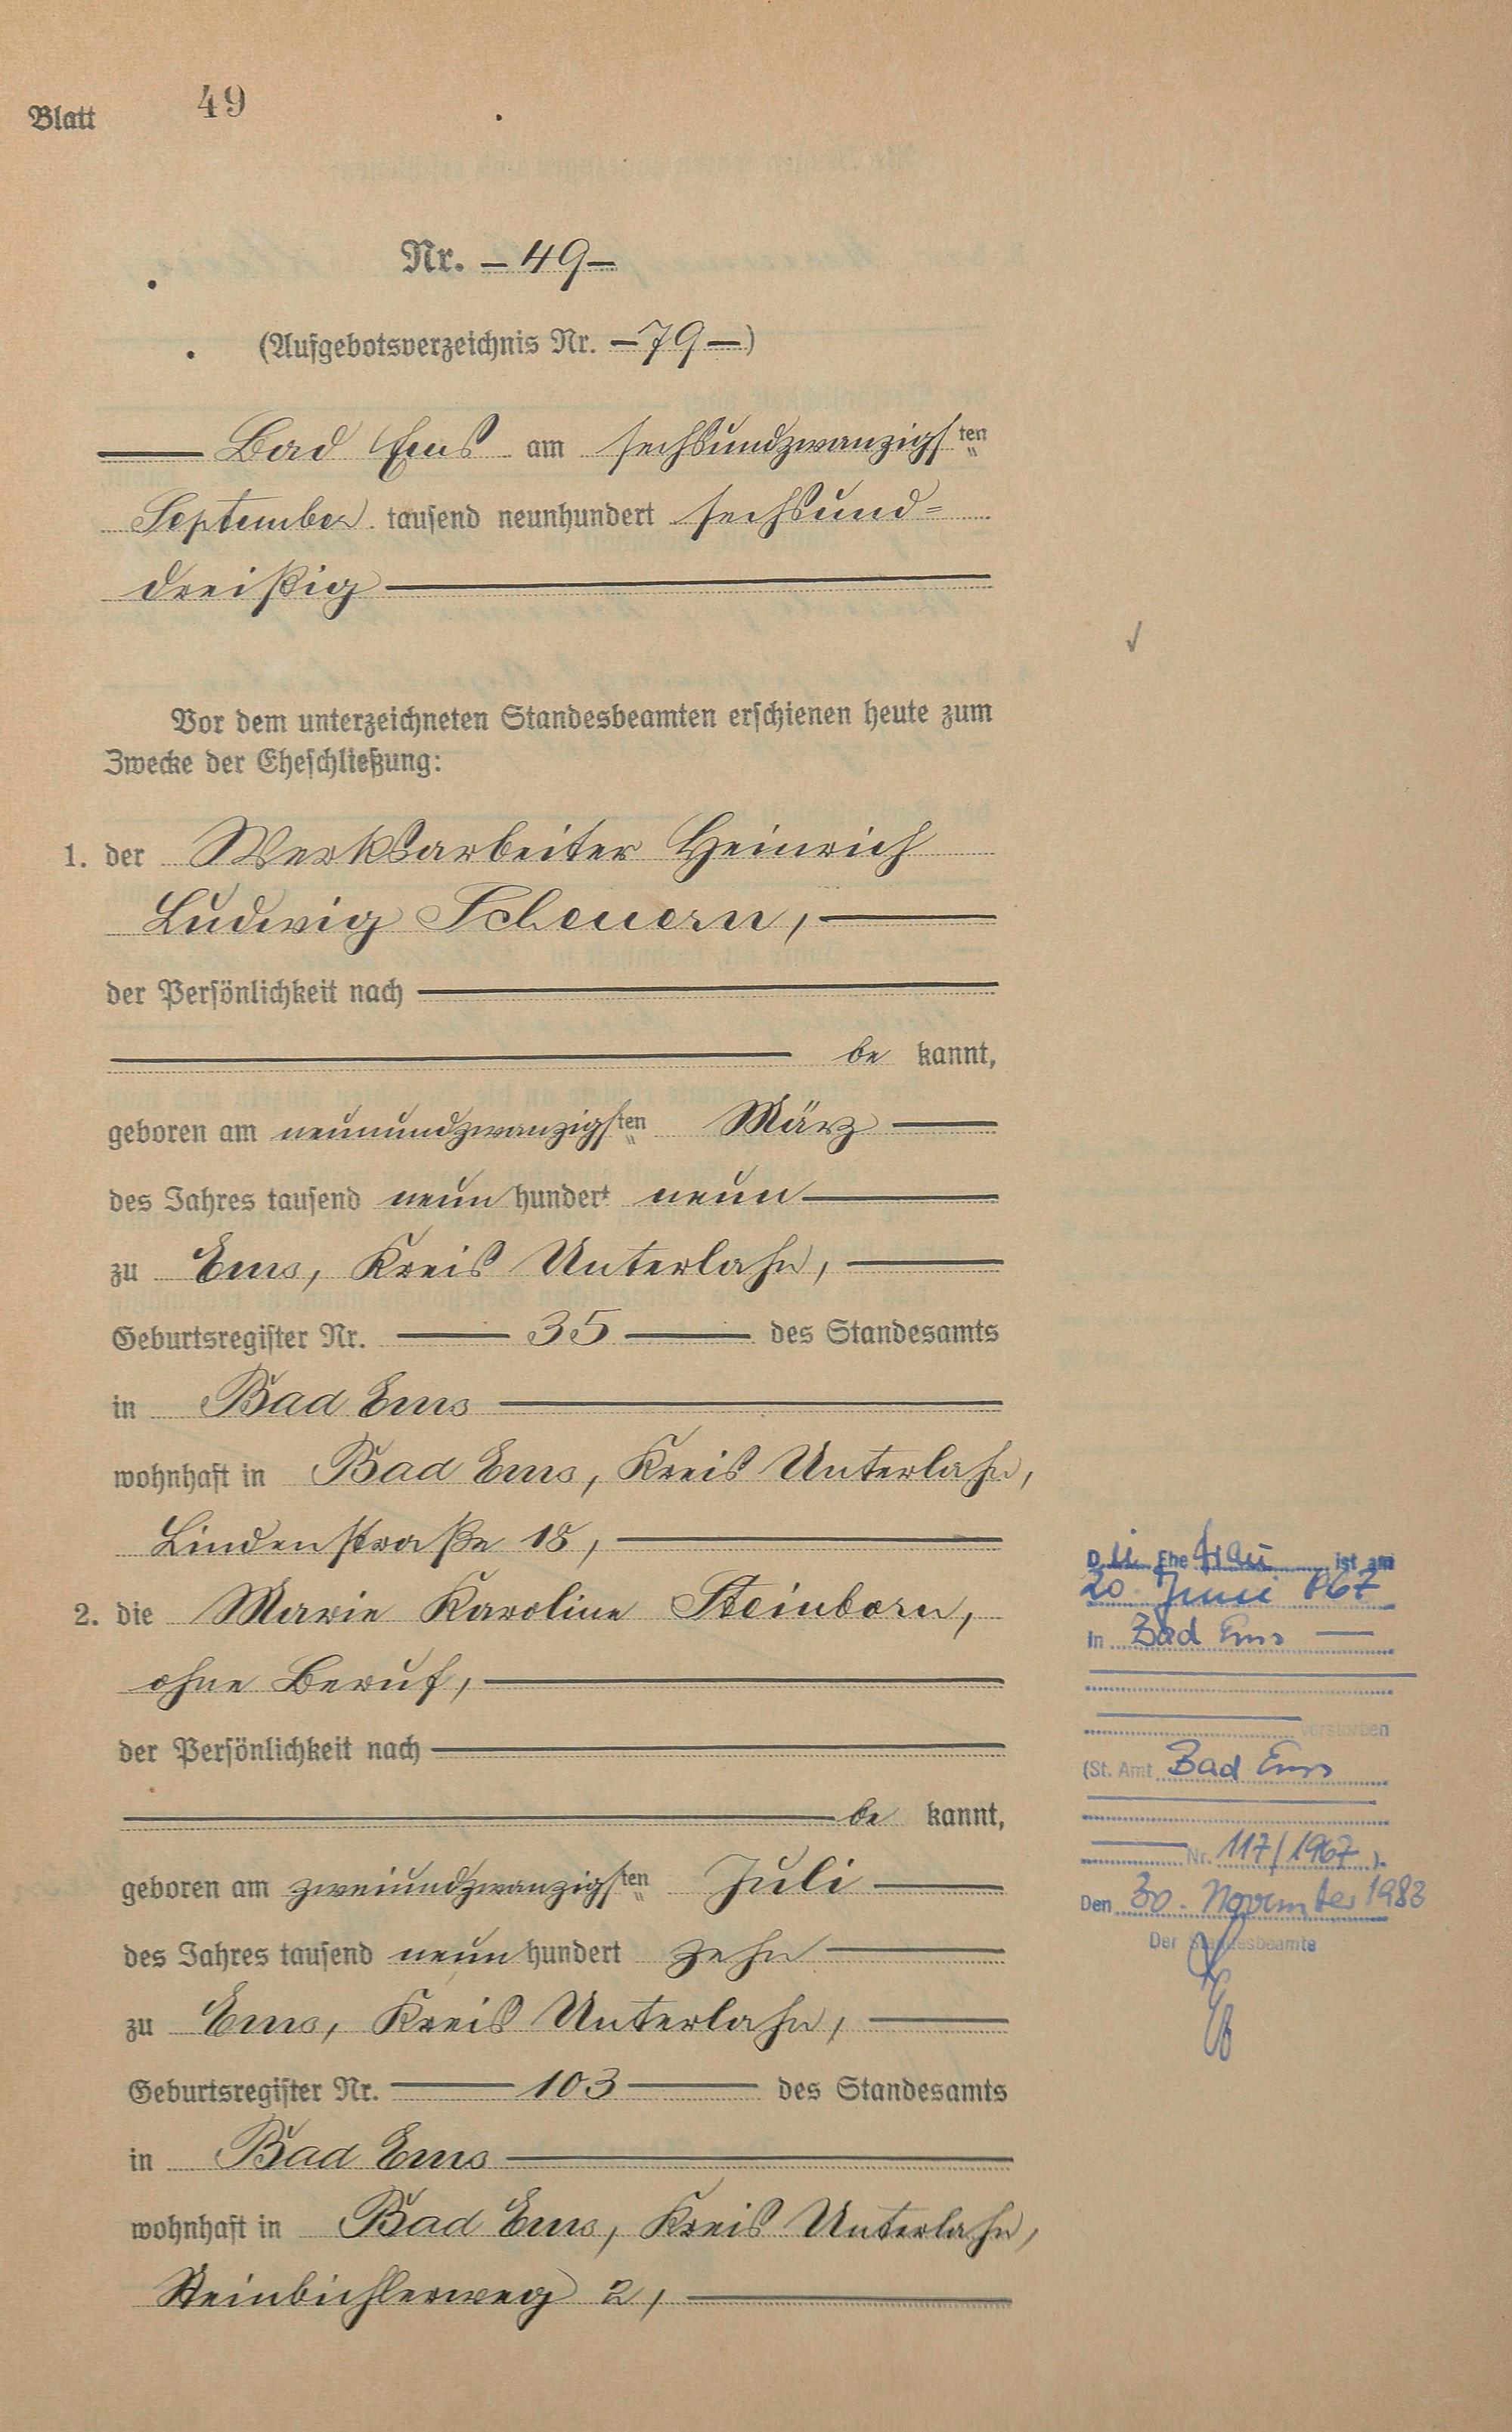 Blatt 49
Nr. -49-
(Aufgebotsverzeichnis Nr. -79-)
Bad Ems am sechsundzwanzigsten
September tausend neunhundert sechsund=
dreißig
Vor dem unterzeichneten Standesbeamten erschienen heute zum
Zwecke der Eheschließung:
1. der Werksarbeiter Heinrich
Ludwig Scheuern,
der Persönlichkeit nach
be kannt,
geboren am neunundzwanzigsten März
des Jahres tausend neun hundert neun
zu Ems, Kreis Unterlahn,
Geburtsregister Nr. 35 des Standesamts
in Bad Ems
wohnhaft in Bad Ems, Kreis Unterlahn,
Lindenstraße 18,
2. die Marie Karoline Steinborn,
ohne Beruf,
der Persönlichkeit nach
be kannt,
geboren am zweiundzwanzigsten Juli
des Jahres tausend neun hundert zehn
zu Ems, Kreis Unterlahn,
Geburtsregister Nr. 103 des Standesamts
in Bad Ems
wohnhaft in Bad Ems, Kreis Unterlahn,
Steinbichlerweg 2,
Die Ehe frau ist am
20. Juni 1967
in Bad Ems
verstorben
(St. Amt Bad Ems
Nr. 117/1967).
Den 30. November 1983
Der Standesbeamte